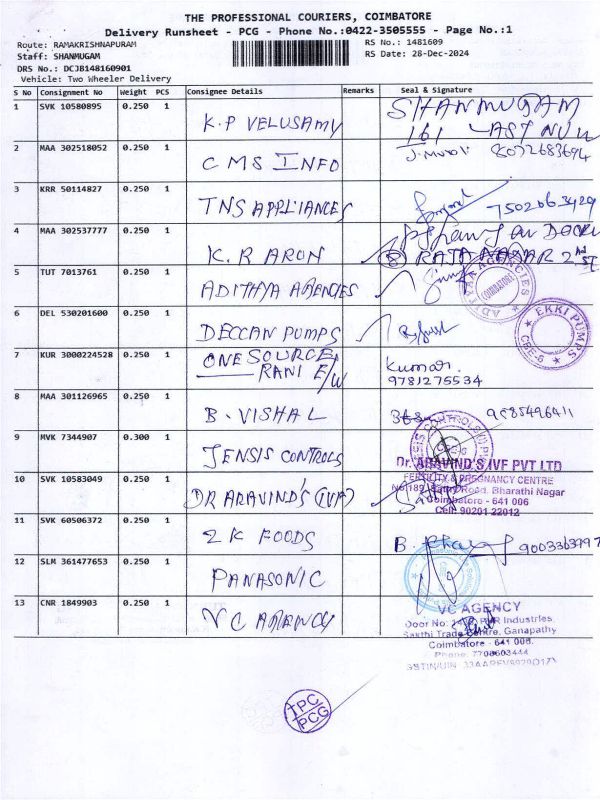 THE PROFESSIONAL COURIERS, COIMBATORE
Delivery Runsheet - PCG - Phone No.:0422-3505555 - Page No.:1
Route: RAMAKRISHNAPURAM
RS No.: 1481609
Staff: SHANMUGAM
RS Date: 28-Dec-2024
DRS No.: DCJB148160901
Vehicle: Two Wheeler Delivery
S No Consignment No Weight PCS Consignee Details Remarks Seal & Signature
1 SVK 10580895 0.250 1 K.P VELUSAMY SHANMUGAM
161
2 MAA 302518052 0.250 1 CMS INFO 8072683694
3 KRR 50114827 0.250 1 TNS APPLIANCES
4 MAA 302537777 0.250 1 K.R ARON
RAJA NAGAR 2
5 TUT 7013761 0.250 1 ADITHYA AGENCIES
ADITHYA AGENCIES
COIMBATORE
6 DEL 530201600 0.250 1 DECCAN PUMPS
EKKI PUMPS
CBE-6
7 KUR 3000224528 0.250 1 ONE SOURCE
RANI E/W
Kumar.
9781275534
8 MAA 301126965 0.250 1 B. VISHAL
9 MVK 7344907 0.300 1 JENSIS CONTROLS
Dr. ARAVIND'S IVF PVT LTD
FERTILITY & PREGNANCY CENTRE
Bharathi Nagar
Coimbatore - 641 006
Cell: 90201 22012
10 SVK 10583049 0.250 1 DR ARAVIND'S (IVF)
11 SVK 60506372 0.250 1 2K FOODS B.
12 SLM 361477653 0.250 1 PANASONIC
13 CNR 1849903 0.250 1 VC AGENCY
VC AGENCY
Door No: Industries,
Sakthi Trade Centre, Ganapathy
Coimbatore - 641 006.
Phone: 7708603444
TPC
PCG